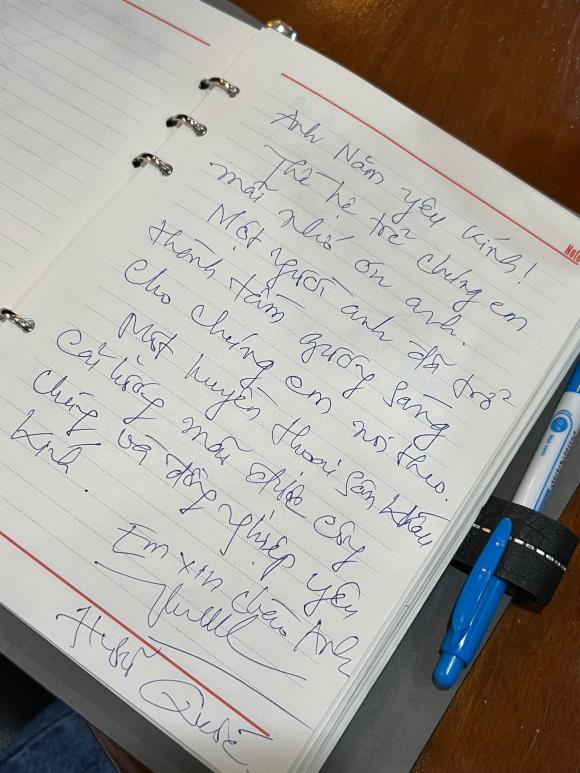 Anh Năm yêu kính!
Thế hệ trẻ chúng em
mãi nhớ ơn anh.
Một người anh đã trở
thành tấm gương sáng
cho chúng em noi theo.
Một huyền thoại sân khấu
Cải lương mãi được công
chúng và đồng nghiệp yêu
kính.
Em xin chào Anh